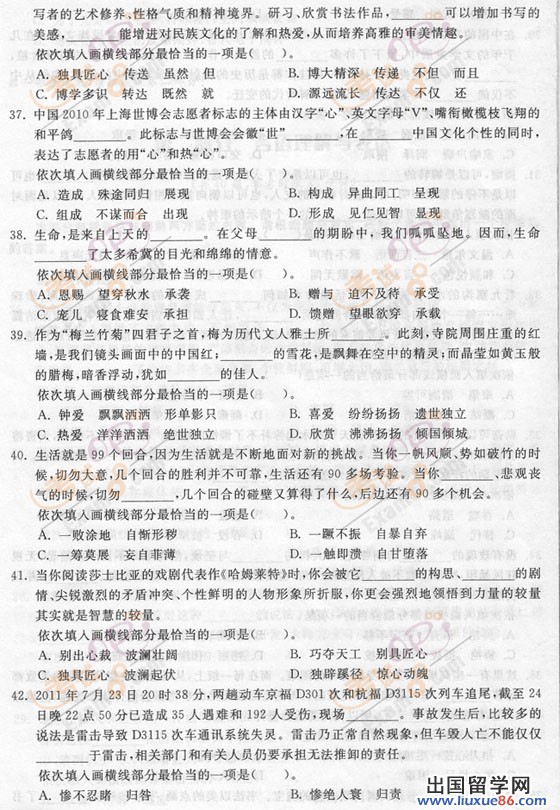 写者的艺术修养、性格气质和精神境界。研习、欣赏书法作品,______可以增加对书写的
美感,______能增进对民族文化的了解和热爱,从而培养高雅的审美情趣。
依次填入画横线部分最恰当的一项是( )。
A. 独具匠心 传送 虽然 但 B. 博大精深 传递 不但 而且
C. 博学多识 转达 既然 就 D. 源远流长 传达 不仅 还
37. 中国2010年上海世博会志愿者标志的主体由汉字“心”、英文字母“V”、嘴衔橄榄枝飞翔的
和平鸽______。此标志与世博会会徽“世”______,在______中国文化个性的同时,
表达了志愿者的用“心”和热“心”。
依次填入画横线部分最恰当的一项是( )。
A. 造成 殊途同归 展现 B. 构成 异曲同工 呈现
C. 组成 不谋而合 出现 D. 形成 见仁见智 显现
38. 生命,是来自上天的______。在父母______的期盼中,我们呱呱坠地。因而,生命
______了太多希冀的目光和绵绵的情意。
依次填入画横线部分最恰当的一项是( )。
A. 恩赐 望穿秋水 承袭 B. 赠与 迫不及待 承受
C. 宠儿 寝食难安 承担 D. 馈赠 望眼欲穿 承载
39. 作为“梅兰竹菊”四君子之首,梅为历代文人雅士所______。此刻,寺院周围庄重的红
墙,是我们镜头画面中的中国红;______的雪花,是飘舞在空中的精灵;而晶莹如黄玉般
的腊梅,暗香浮动,犹如______的佳人。
依次填入画横线部分最恰当的一项是( )。
A. 钟爱 飘飘洒洒 形单影只 B. 喜爱 纷纷扬扬 遗世独立
C. 热爱 洋洋洒洒 绝世独立 D. 欣赏 沸沸扬扬 倾国倾城
40. 生活就是99个回合,因为生活就是不断地面对新的挑战。当你一帆风顺、势如破竹的时
候,切勿大意,几个回合的胜利并不可靠,生活还有90多场考验。当你______、悲观丧
气的时候,切勿______,几个回合的碰壁又算得了什么,后边还有90多个机会。
依次填入画横线部分最恰当的一项是( )。
A. 一败涂地 自惭形秽 B. 一蹶不振 自暴自弃
C. 一筹莫展 妄自菲薄 D. 一触即溃 自甘堕落
41. 当你阅读莎士比亚的戏剧代表作《哈姆莱特》时,你会被它______的构思、______的剧
情、尖锐激烈的矛盾冲突、个性鲜明的人物形象所折服,你更会强烈地领悟到力量的较量
其实就是智慧的较量。
依次填入画横线部分最恰当的一项是( )。
A. 别出心裁 波澜壮阔 B. 巧夺天工 别具一格
C. 独具匠心 波澜起伏 D. 独辟蹊径 惊心动魄
42. 2011年7月23日20时38分,两趟动车京福D301次和杭福D3115次列车追尾,截至24
日晚22点50分已造成35人遇难和192人受伤,现场______。事故发生后,比较多的
说法是雷击导致D3115次车通讯系统失灵。雷击乃正常自然现象,但车毁人亡不能仅仅
______于雷击,相关部门和有关人员仍要承担无法推卸的责任。
依次填入画横线部分最恰当的一项是( )。
A. 惨不忍睹 归咎 B. 惨绝人寰 归责
出国留学网
www.liuxue86.com